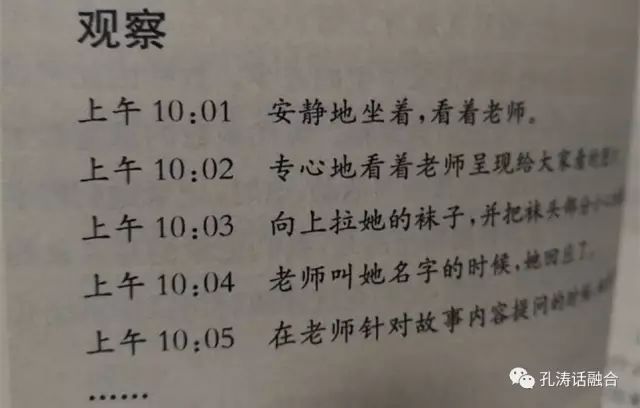 观察
上午 10:01 安静地坐着,看着老师。
上午 10:02 专心地看着老师呈现给大家看的
上午 10:03 向上拉她的袜子,并把袜头部分小心
上午 10:04 老师叫她名字的时候,她回应了。
上午 10:05 在老师针对故事内容提问的时候,
……
孔涛话融合